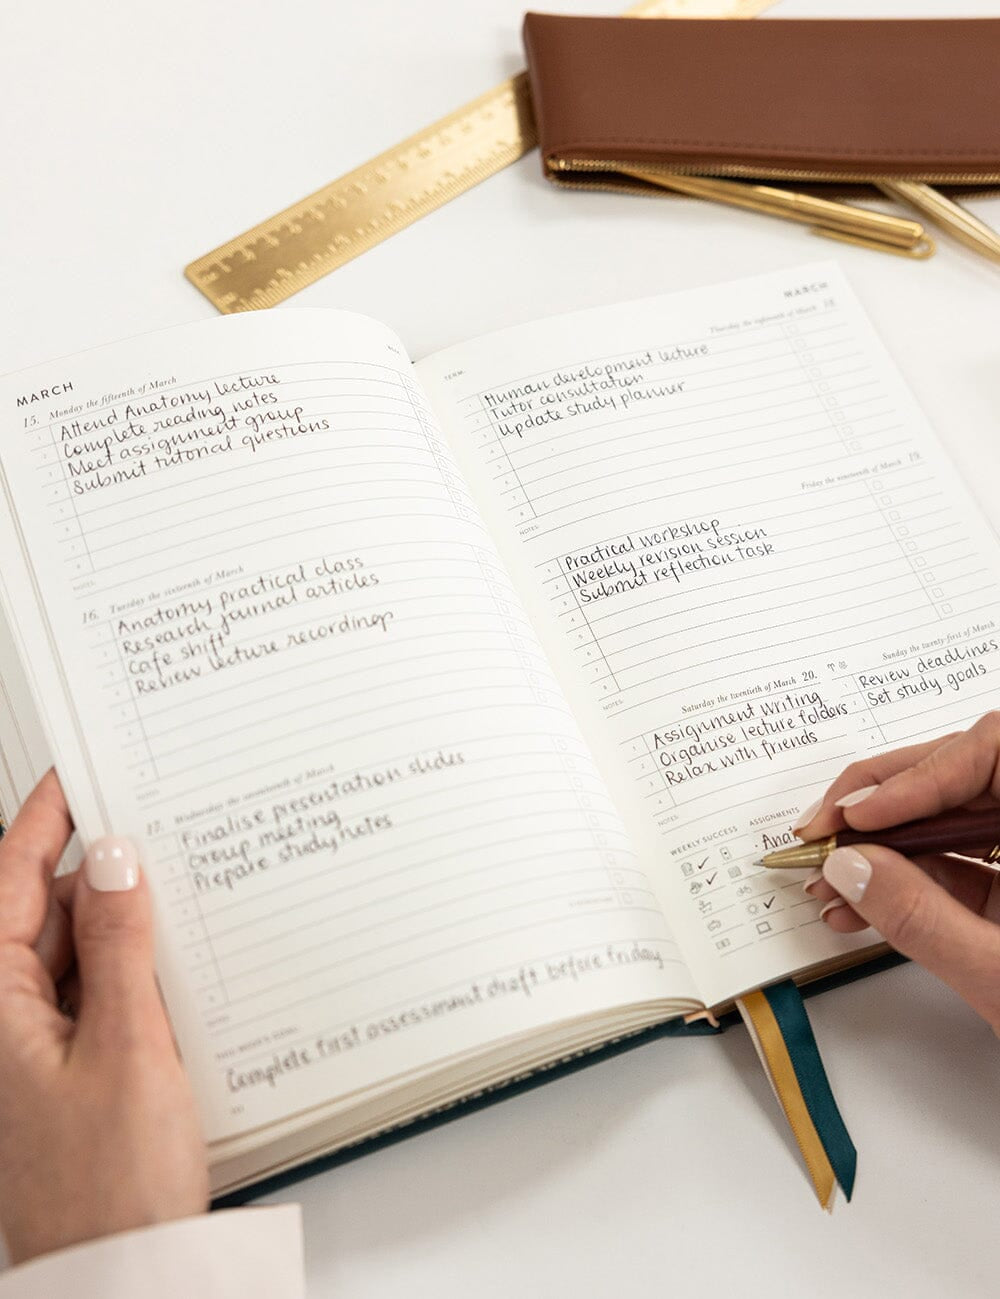 MARCH
15. Monday the fifteenth of March
Attend Anatomy lecture
Complete reading notes
Meet assignment group
Submit tutorial questions
NOTES:
16. Tuesday the sixteenth of March
Anatomy practical class
Research journal articles
Cafe shift
Review lecture recordings
NOTES:
17. Wednesday the seventeenth of March
Finalise presentation slides
Group meeting
Prepare study notes
Complete first assessment draft before friday
MARCH
TERM:
Thursday the eighteenth of March 18.
Human development lecture
Tutor consultation
Update study planner
NOTES:
Friday the nineteenth of March 19.
Practical workshop
Weekly revision session
Submit reflection task
NOTES:
Saturday the twentieth of March 20.
Assignment writing
Organise lecture folders
Relax with friends
NOTES:
Sunday the twenty-first of March
Review deadlines
Set study goals
WEEKLY SUCCESS
ASSIGNMENTS